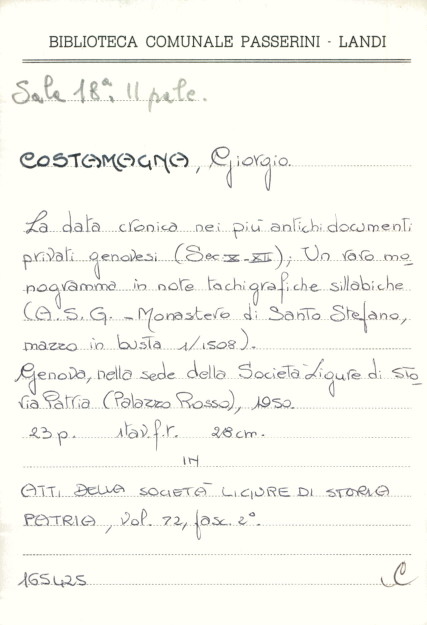 BIBLIOTECA COMUNALE PASSERINI - LANDI
Sala 18ª. II palc.
COSTAMAGNA, Giorgio.
La data cronica nei più antichi documenti
privati genovesi (Sec X-XII); Un raro mo=
nogramma in note tachigrafiche sillabiche
(A.S.G. - Monastero di Santo Stefano,
mazzo in busta 1/1508).
Genova, nella sede della Società Ligure di Sto=
ria Patria (Palazzo Rosso), 1950.
23 p. 1 tav. f.t. 28 cm.
IN
ATTI DELLA SOCIETÀ LIGURE DI STORIA
PATRIA, vol. 72, fasc. 2°.
165425 C